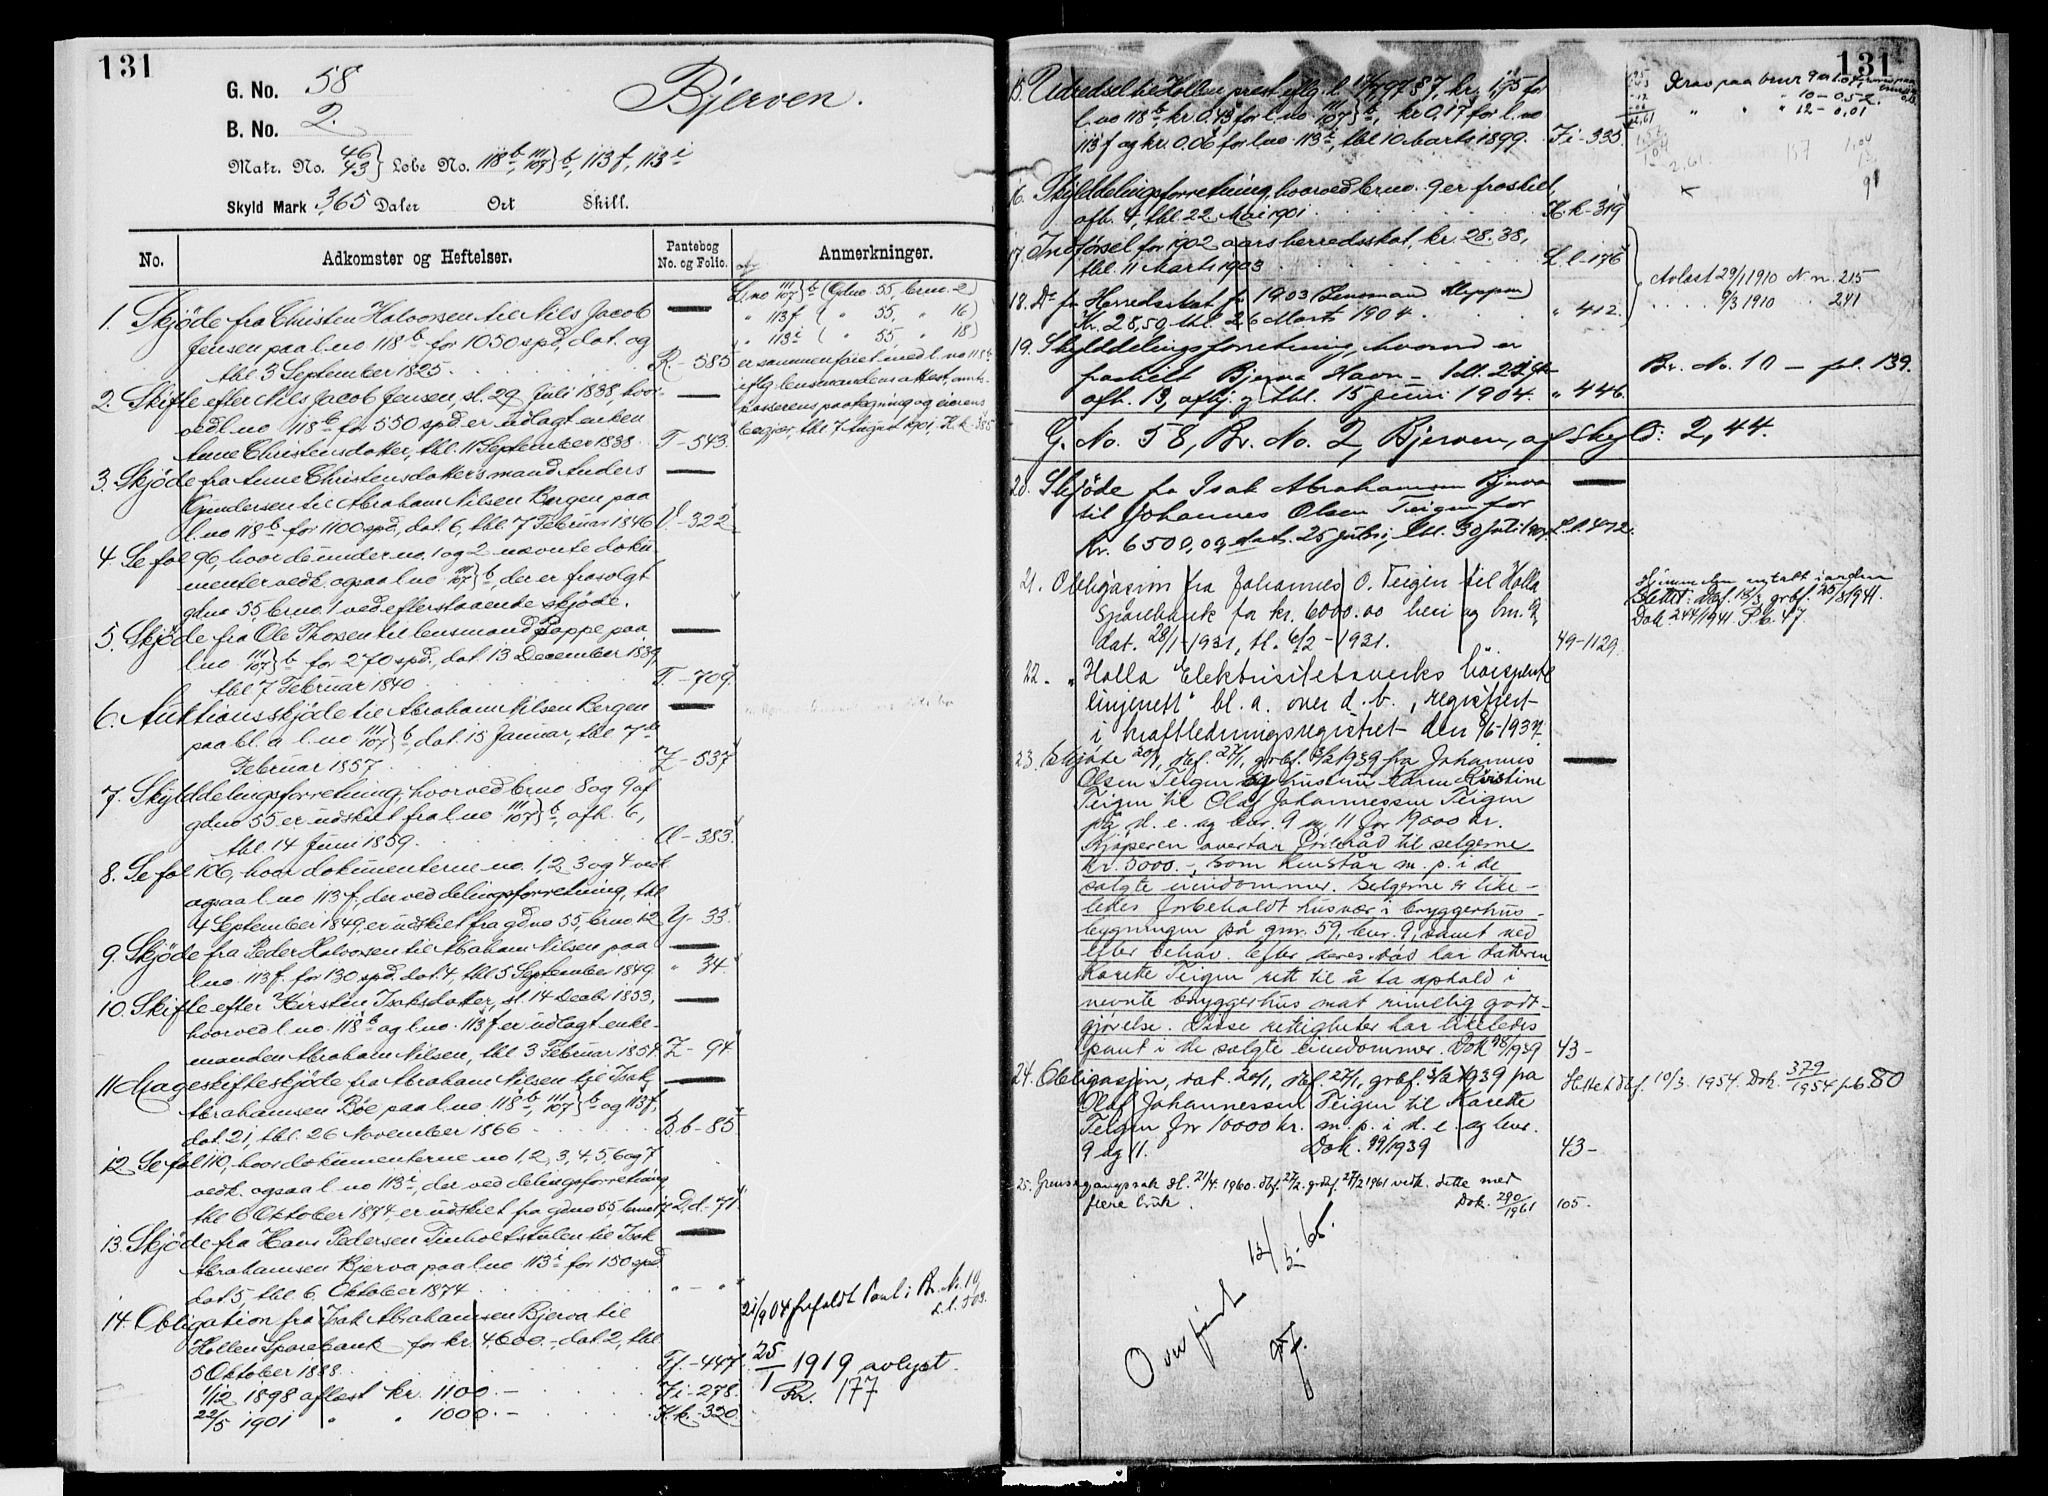 131
G. No. 58
Bjerven.
B. No. 2.
Matr. No. 46/43} Løbe No. 118b, 111/107}b, 113f, 113i
Skyld Mark 3,65 Daler Ort Skill.
No. Adkomster og Heftelser. Pantebog No. og Folio. Anmerkninger.
1. Skjøde fra Christen Halvorsen til Nils Jacob
Jensen paa l.no 118b for 1050 spd, dat. og
tbl 3 September 1825. R. 585
2. Skifte efter Nils Jacob Jensen, st. 29 Juli 1838, hvor-
ved l.no 118b for 550 spd er udlagt enken
Anne Christensdatter, tbl. 11 September 1838. T-543.
3. Skjøde fra Anne Christensdatters mand Anders
Gundersen til Abraham Nilsen Bergen paa
l.no 118b for 1100 spd, dat. 6, tbl. 7 Februar 1846 V-322
4. Se fol 96, hvor de under no. 1 og 2 nævnte doku-
menter vedk. ogsaa l.no 111/107}b, der er frasolgt
gdno 55, brno. 1 ved efterstaaende skjøde.
5. Skjøde fra Ole Thorsen til lensmand Pappe paa
l.no 111/107}b for 270 spd., dat. 13 December 1839,
tbl 7 Februar 1840 T.-709.
6. Auktionsskjøde til Abraham Nilsen Bergen
paa bl. a l.no 111/107}b, dat. 15 Januar, tbl. 7de
Februar 1857. Z-537
7. Skylddelingsforretning, hvorved brno 8 og 9 af
gdno 55 er udskilt fra l.no 111/107}b, afh. 6,
tbl. 14 Juni 1859. A-383.
8. Se fol 106, hvor dokumenterne no. 1, 2, 3 og 4 vedk
ogsaa l.no 113f, der ved delingsforretning, tbl
4 September 1849, er udskilt fra gdno 55, brno 12 Y-33.
9. Skjøde fra Peder Halvorsen til Abraham Nilsen paa
l.no. 113f. for 130 spd, dat. 4, tbl 5 September 1849. " 34.
10. Skifte efter Kirsten Isaksdatter, st. 14 Decbr 1853,
hvorved l.no. 118b og l.no. 113f er udlagt enke-
manden Abraham Nilsen, tbl 3 Februar 1854. Z-94
11. Mageskifteskjøde fra Abraham Nilsen til Isak
Abrahamsen Bøe paa l.no 118b, 111/107}b og 113f,
dat. 21, tbl. 26 November 1866 B.b-85.
12. Se fol 110, hvor dokumenterne no 1, 2, 3, 4, 5, 6 og 7
vedk. ogsaa l.no 113i, der ved delingsforretning,
tbl 6 Oktober 1874, er udskilt fra gdno 55, brno 17 D.d-71
13. Skjøde fra Hans Pedersen Tinholtstulen til Isak
Abrahamsen Bjerva paa l.no 113i for 150 spd
dat. 5 tbl. 6. Oktober 1874 " - "
14. Obligation fra Isak Abrahamsen Bjerva til
Hollen Sparebank for kr. 4600.-, dat. 2, tbl.
5 Oktober 1888. F.f.-447.
1/12 1898 aflæst kr. 1100.- F.i-278.
22/5 1901 " " 1000.- K.k.-320
L.no 111/107}b (Gdno 55, brno. 2)
" 113f ( " 55, " 16)
" 113i ( " 55, " 18)
er sammenføiet med l.no 118b
iflg. lensmandens attest, amts-
kasserens paategning og eierens
begjær., tbl 7 August 1901, K.k-385
21/9 04 frafaldt Pant i Br. N. 10,
L.l. 503.
25/1 1919 avlyst.
Rr. 177
131
15. Udredsel til Hollen prest iflg. l. kr. 1,95 for
l.no 118b, kr 0,43 for l.no 111/107}b, kr 0.17 for l.no
113f og kr. 0.06 for l.no 113i, tbl 10 Marts 1899. F.i-335.
Kras paa brnr 9 er 1.04,
" " 10 - 0.52.
" " 12 - 0,01
16. Skylddelingsforretning, hvorved brno. 9 er fraskilt,
afh. 4, tbl. 22 Mai 1901 K.k-319
17. Indførsel for 1902 aars herredsskat, kr. 28.38,
tbl. 11 Marts 1903 L.l-176
Avlæst 29/1 1910 N.n. 215
" " 9/3 1910 " 241
18. Do for Herredsskat for 1903
Kr. 28,50, tbl. 26 Marts 1904. " 412.
19. Skylddelingsforretning, hvorved er
fraskilt Bjerva Havn -
afh. 13, afhj. og tbl. 15 Juni 1904. " 446.
Br. No. 10 - fol. 139.
G. No. 58, Br. No. 2, Bjerven, af Skyld: 2,44.
20. Skjøde fra Isak Abrahamsen Bjerva
til Johannes Olsen Teigen for
kr. 6500,00, dat. 25 Juli, tbl. 30 Juli 1904 L.l. 472.
21. Obligasjon fra Johannes O. Teigen til Holla
Sparebank for kr. 6000.00 heri og brn. 9,
dat. 28/1-1931, tl. 6/2-1931. 49-1129
Slettet: Dbf. 18/3, grbf. 25/3 1941.
Dok 244/1941 P.b. 47
22. "Holla Elektrisitetsverks høispente
linjenett" bl. a. over d. b., registrert
i kraftledningsregistret den 8/6-1937.
23. Skjøte 20/1, dbf. 27/1, grbf. 3/2 1939 fra Johannes
Olsen Teigen og hustru Anne Kirstine
Teigen til Olaf Johannessen Teigen
på d. e. og bnr. 9 og 11 for 19000 kr.
Kjøperen overtar forlråd til selgerne
kr. 5000.-, som henstår m. p. i de
solgte eiendommer. Selgerne er like-
ledes forbeholdt husvær i bryggerhus-
bygningen på gnr. 59, bnr. 9, samt ved
efter behov. Efter deres død har datteren
Karette Teigen rett til å ta ophold i
nevnte bryggerhus mot rimelig godt-
gjørelse. Disse rettigheter har likeledes
pant i de solgte eiendommer. Dok 98/1939 43-
24. Obligasjon, dat. 20/1, dbf. 27/1, grbf. 3/2 1939 fra
Olaf Johannessen Teigen til Karette
Teigen for 10000 kr. m. p. i d. e. og bnr.
9 og 11. Dok. 99/1939 43-
Slettet dbf. 10/3. 1954. Dok. 379/1954 pb 80
25. Grensegangssak tl. 21/4. 1960. dbf. 27/2. grbf. 27/2 1961 vedk. dette med
flere bruk. Dok. 290/1961 105.
Overført 12/5-65.